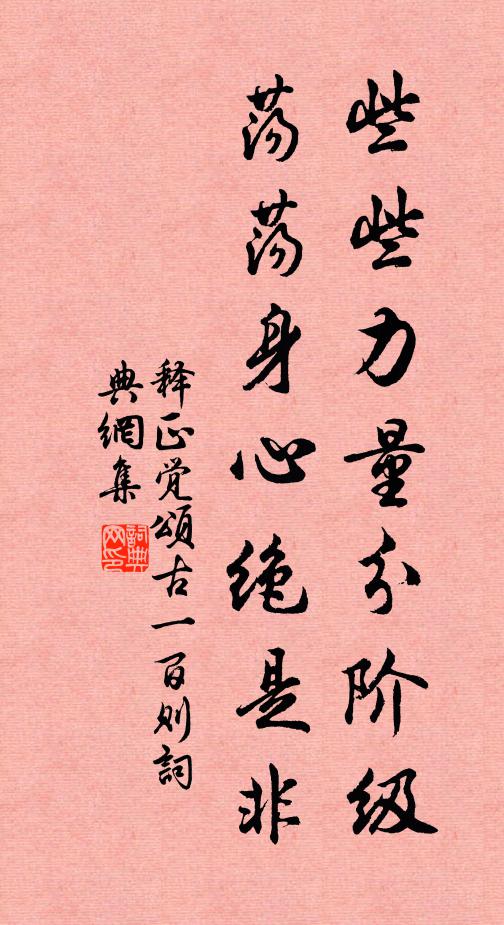 些些力量分阶级
荡荡身心绝是非
释正觉颂古一百则詞
典網集
詞典
网印